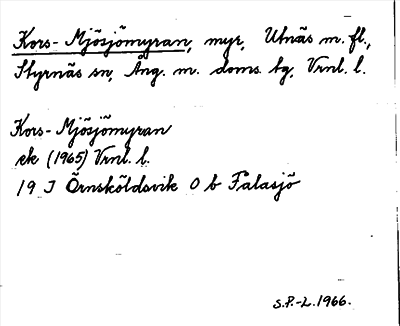 Kors-Mjösjömyran, myr, Utnäs m. fl.,
Styrnäs sn, Ång. m. doms. tg, Vrnl. l.
Kors-Mjösjömyran
ek (1965) Vrnl. l.
19 J Örnsköldsvik O b Falasjö
S.P.-L. 1966.